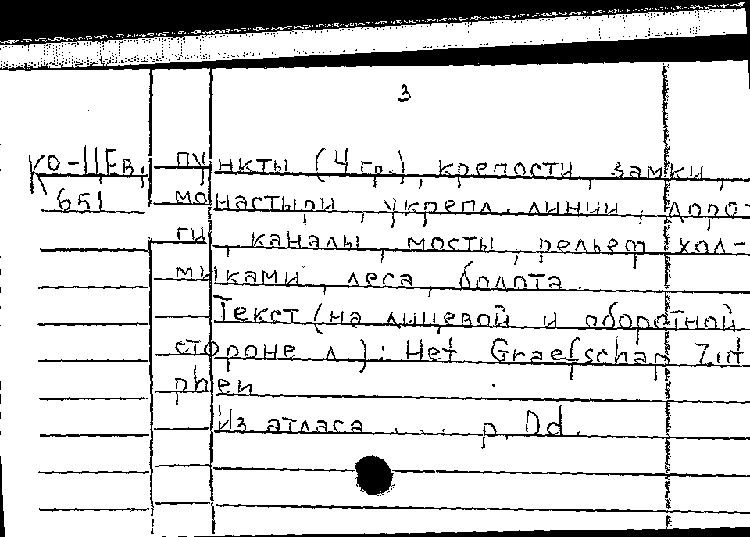 3
Ко-IIЕв, пункты (4 гр.), крепости, замки,
651 монастыри, укрепл. линии, доро-
ги, каналы, мосты, рельеф хол-
миками, леса, болота
Текст (на лицевой и оборотной
стороне л.): Het Graefschap Zut
phen
Из атласа .... р. Dd.